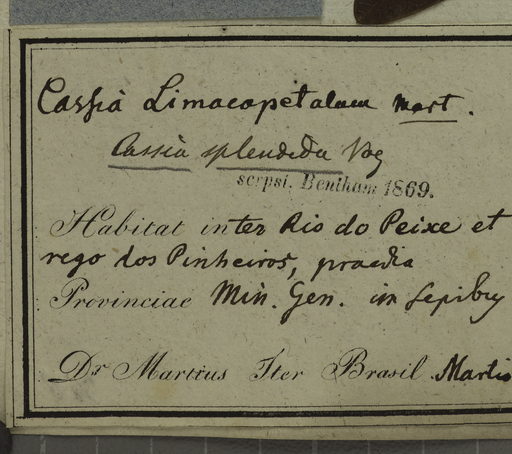 Cassia Limacopetalum Mart.
Cassia splendida Vog
scrpsi. Bentham 1869.
Habitat inter Rio do Peixe et
rego dos Pinheiros, praedia
Provinciae Min. Gen. in sepibus
Dr Martius Iter Brasil. Martio